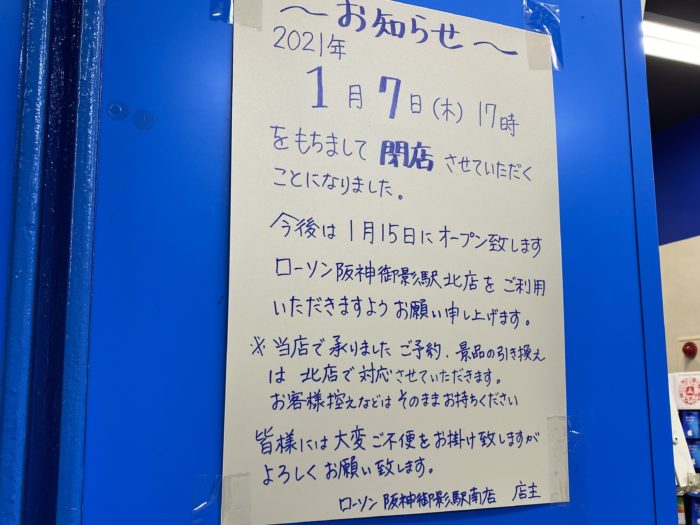 ～お知らせ～
2021年
1月7日(木)17時
をもちまして閉店させていただく
ことになりました。
今後は1月15日にオープン致します
ローソン阪神御影駅北店をご利用
いただきますようお願い申し上げます。
※当店で承りましたご予約、景品の引き換え
は北店で対応させていただきます。
お客様控えなどはそのままお持ちください
皆様には大変ご不便をお掛け致しますが
よろしくお願い致します。
ローソン阪神御影駅南店 店主